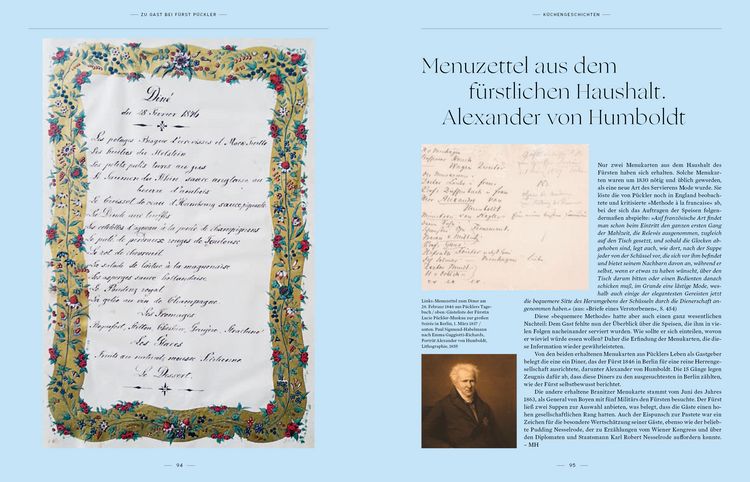 ZU GAST BEI FÜRST PÜCKLER
Diné
du 28 Fevrier 1846
Les huîtres du Holstein
Les petits patés
Le Saumon du Rhin sauce anglaise au
Le cuissot de veau d'Hambourg sauce piquante
La Dinde aux truffes
Les cotelettes d'agneau à la purée de champignons
Le paté de perdreaux rouges de Toulouse
Le rot de chevreuil
La salade de
Les asperges sauce hollandaise
Le Pudding royal
La gelée au vin de Champagne
Les Fromages
Roquefort, Stilton, Cheshire, Gruyère,
Les Glaces
Le Dessert.
94
KÜCHENGESCHICHTEN
Menuzettel aus dem
fürstlichen Haushalt.
Alexander von Humboldt
Links: Menuzettel zum Diner am
28. Februar 1846 aus Pücklers Tage-
buch / oben: Gästeliste der Fürstin
Lucie Pückler-Muskau zur großen
Soirée in Berlin, 1. März 1817 /
unten: Paul Sigmund Habelmann
nach Emma Gaggiotti-Richards,
Porträt Alexander von Humboldt,
Lithographie, 1855
Nur zwei Menukarten aus dem Haushalt des
Fürsten haben sich erhalten. Solche Menukar-
ten waren um 1830 nötig und üblich geworden,
als eine neue Art des Servierens Mode wurde. Sie
löste die von Pückler noch in England beobach-
tete und kritisierte »Methode à la francaise« ab,
bei der sich das Auftragen der Speisen folgen-
dermaßen abspielte: »Auf französische Art findet
man schon beim Eintritt den ganzen ersten Gang
der Mahlzeit, die Relevés ausgenommen, zugleich
auf den Tisch gesetzt, und sobald die Glocken ab-
gehoben sind, legt auch, wie dort, nach der Suppe
jeder von der Schüssel vor, die sich vor ihm befindet
und bietet seinem Nachbarn davon an, während er
selbst, wenn er etwas zu haben wünscht, über den
Tisch darum bitten oder einen Bedienten danach
schicken muß, im Grunde eine lästige Mode, wes-
halb auch einige der elegantesten Gereisten jetzt
die bequemere Sitte des Herumgebens der Schüsseln durch die Dienerschaft an-
genommen haben.« (aus: »Briefe eines Verstorbenen«, S. 454)
Diese »bequemere Methode« hatte aber auch einen ganz wesentlichen
Nachteil: Dem Gast fehlte nun der Überblick über die Speisen, die ihm in vie-
len Folgen nacheinander serviert wurden. Wie sollte er sich einteilen, wovon
er wieviel würde essen wollen? Daher die Erfindung der Menukarten, die die-
se Information wieder gewährleisteten.
Von den beiden erhaltenen Menukarten aus Pücklers Leben als Gastgeber
belegt die eine ein Diner, das der Fürst 1846 in Berlin für eine reine Herrenge-
sellschaft ausrichtete, darunter Alexander von Humboldt. Die 15 Gänge legen
Zeugnis dafür ab, dass diese Diners zu den ausgesuchtesten in Berlin zählten,
wie der Fürst selbstbewusst berichtet.
Die andere erhaltene Branitzer Menukarte stammt vom Juni des Jahres
1863, als General von Boyen mit fünf Militärs den Fürsten besuchte. Der Fürst
ließ zwei Suppen zur Auswahl anbieten, was belegt, dass die Gäste einen ho-
hen gesellschaftlichen Rang hatten. Auch der Eispunsch zur Pastete war ein
Zeichen für die besondere Wertschätzung seiner Gäste, ebenso wie der belieb-
te Pudding Nesselrode, der zu Erzählungen vom Wiener Kongress und über
den Diplomaten und Staatsmann Karl Robert Nesselrode auffordern konnte.
– MH
95